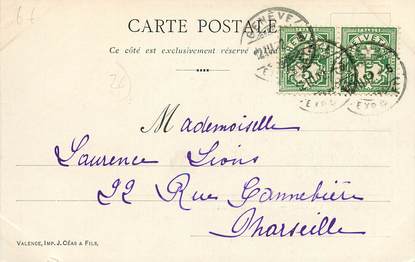 6 €
CARTE POSTALE
Ce côté est exclusivement réservé
GENÈVE
HELVETIA
5
5
Mademoiselle
Laurence Lions
22 Rue Cannebière
Marseille
VALENCE, IMP. J. CÉAS & FILS.